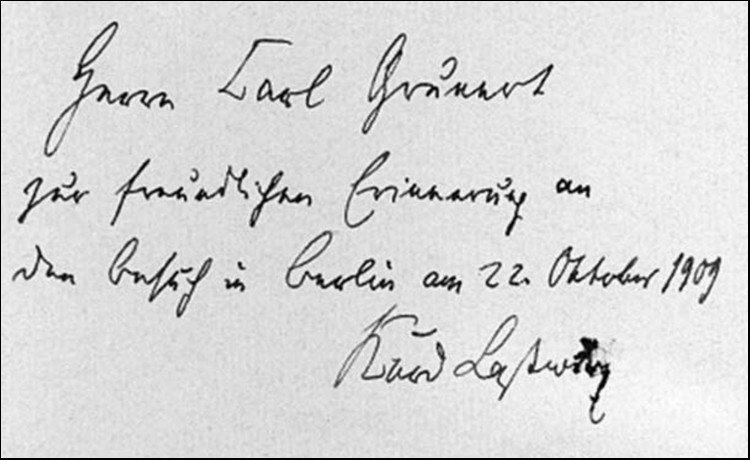 Herrn Carl Grunert
zur freundlichen Erinnerung an
den Besuch in Berlin am 22. Oktober 1909
Kurd Laßwitz